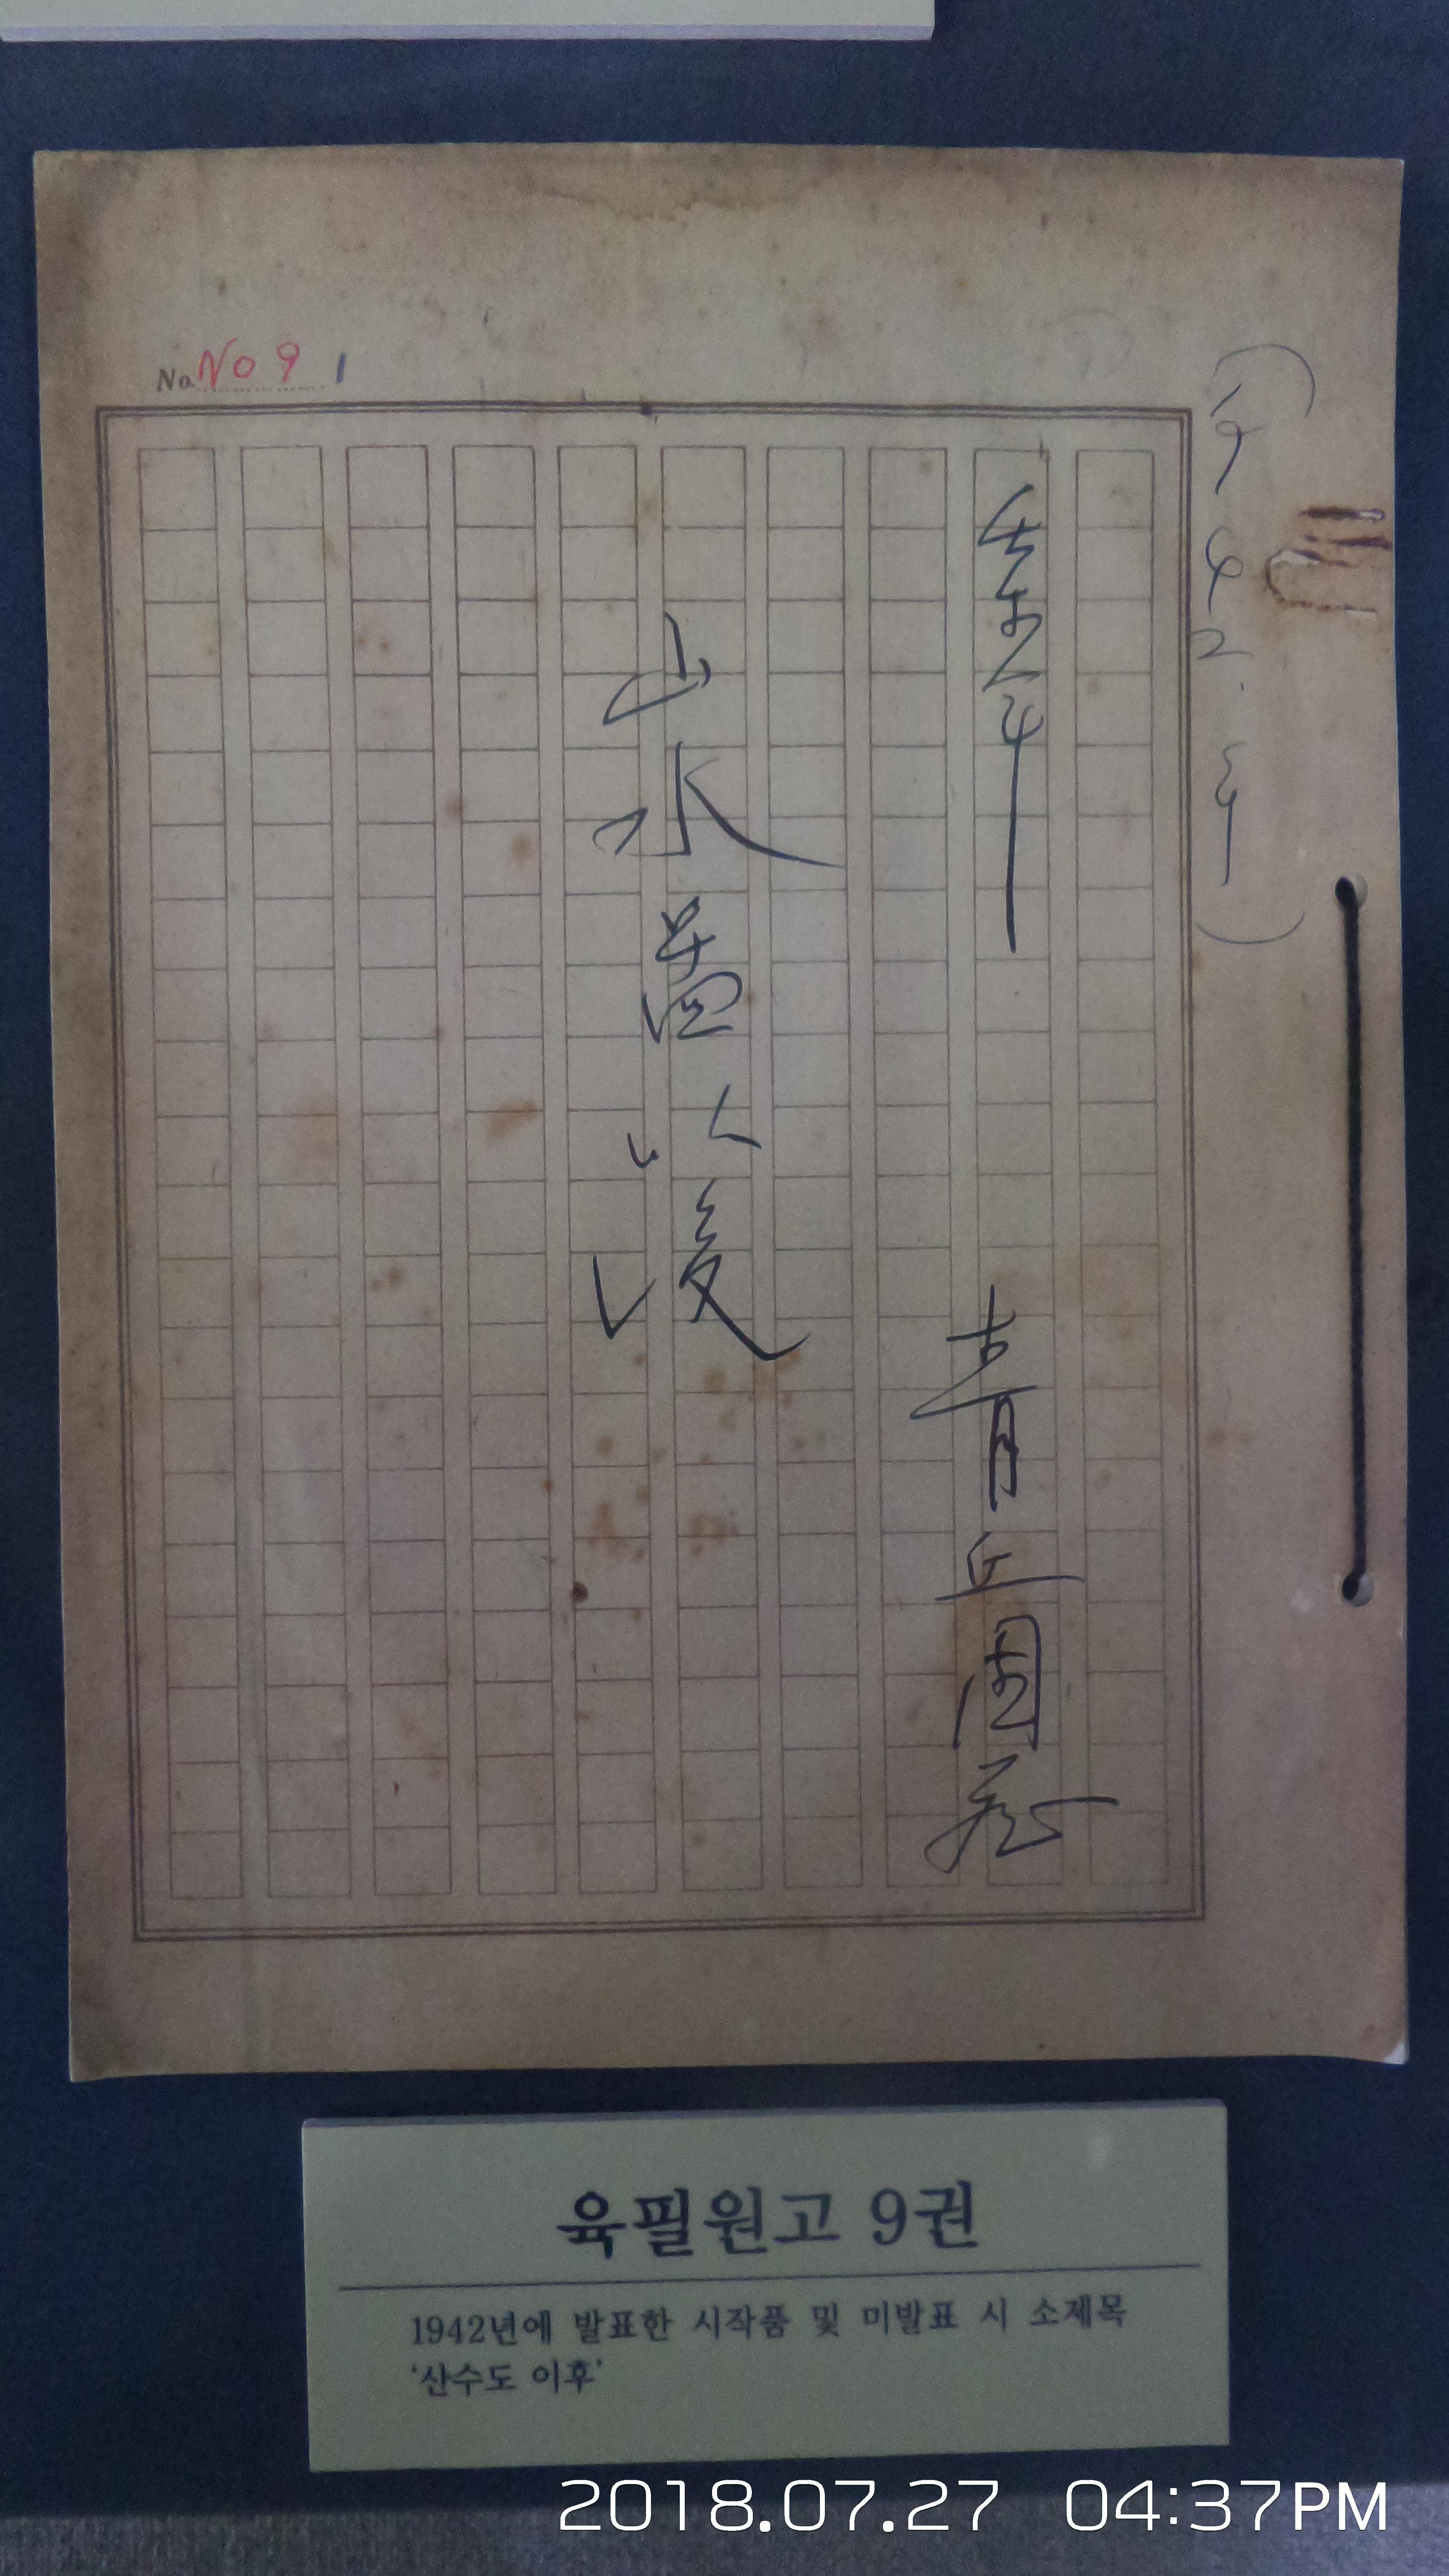 No. No 9 1
(1942.年)
靑丘園
山水圖以後
육필원고 9권
1942년에 발표한 시작품 및 미발표 시 소제목
‘산수도 이후’
2018.07.27 04:37PM